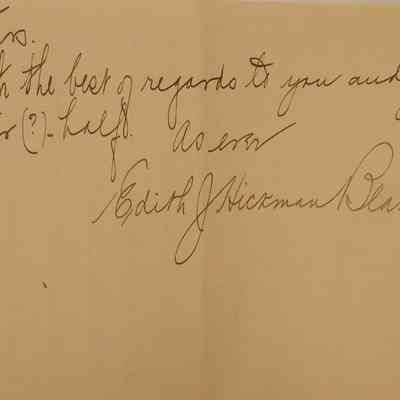 the best of regards to you and
(?)-half. As ever
Edith J Hickman